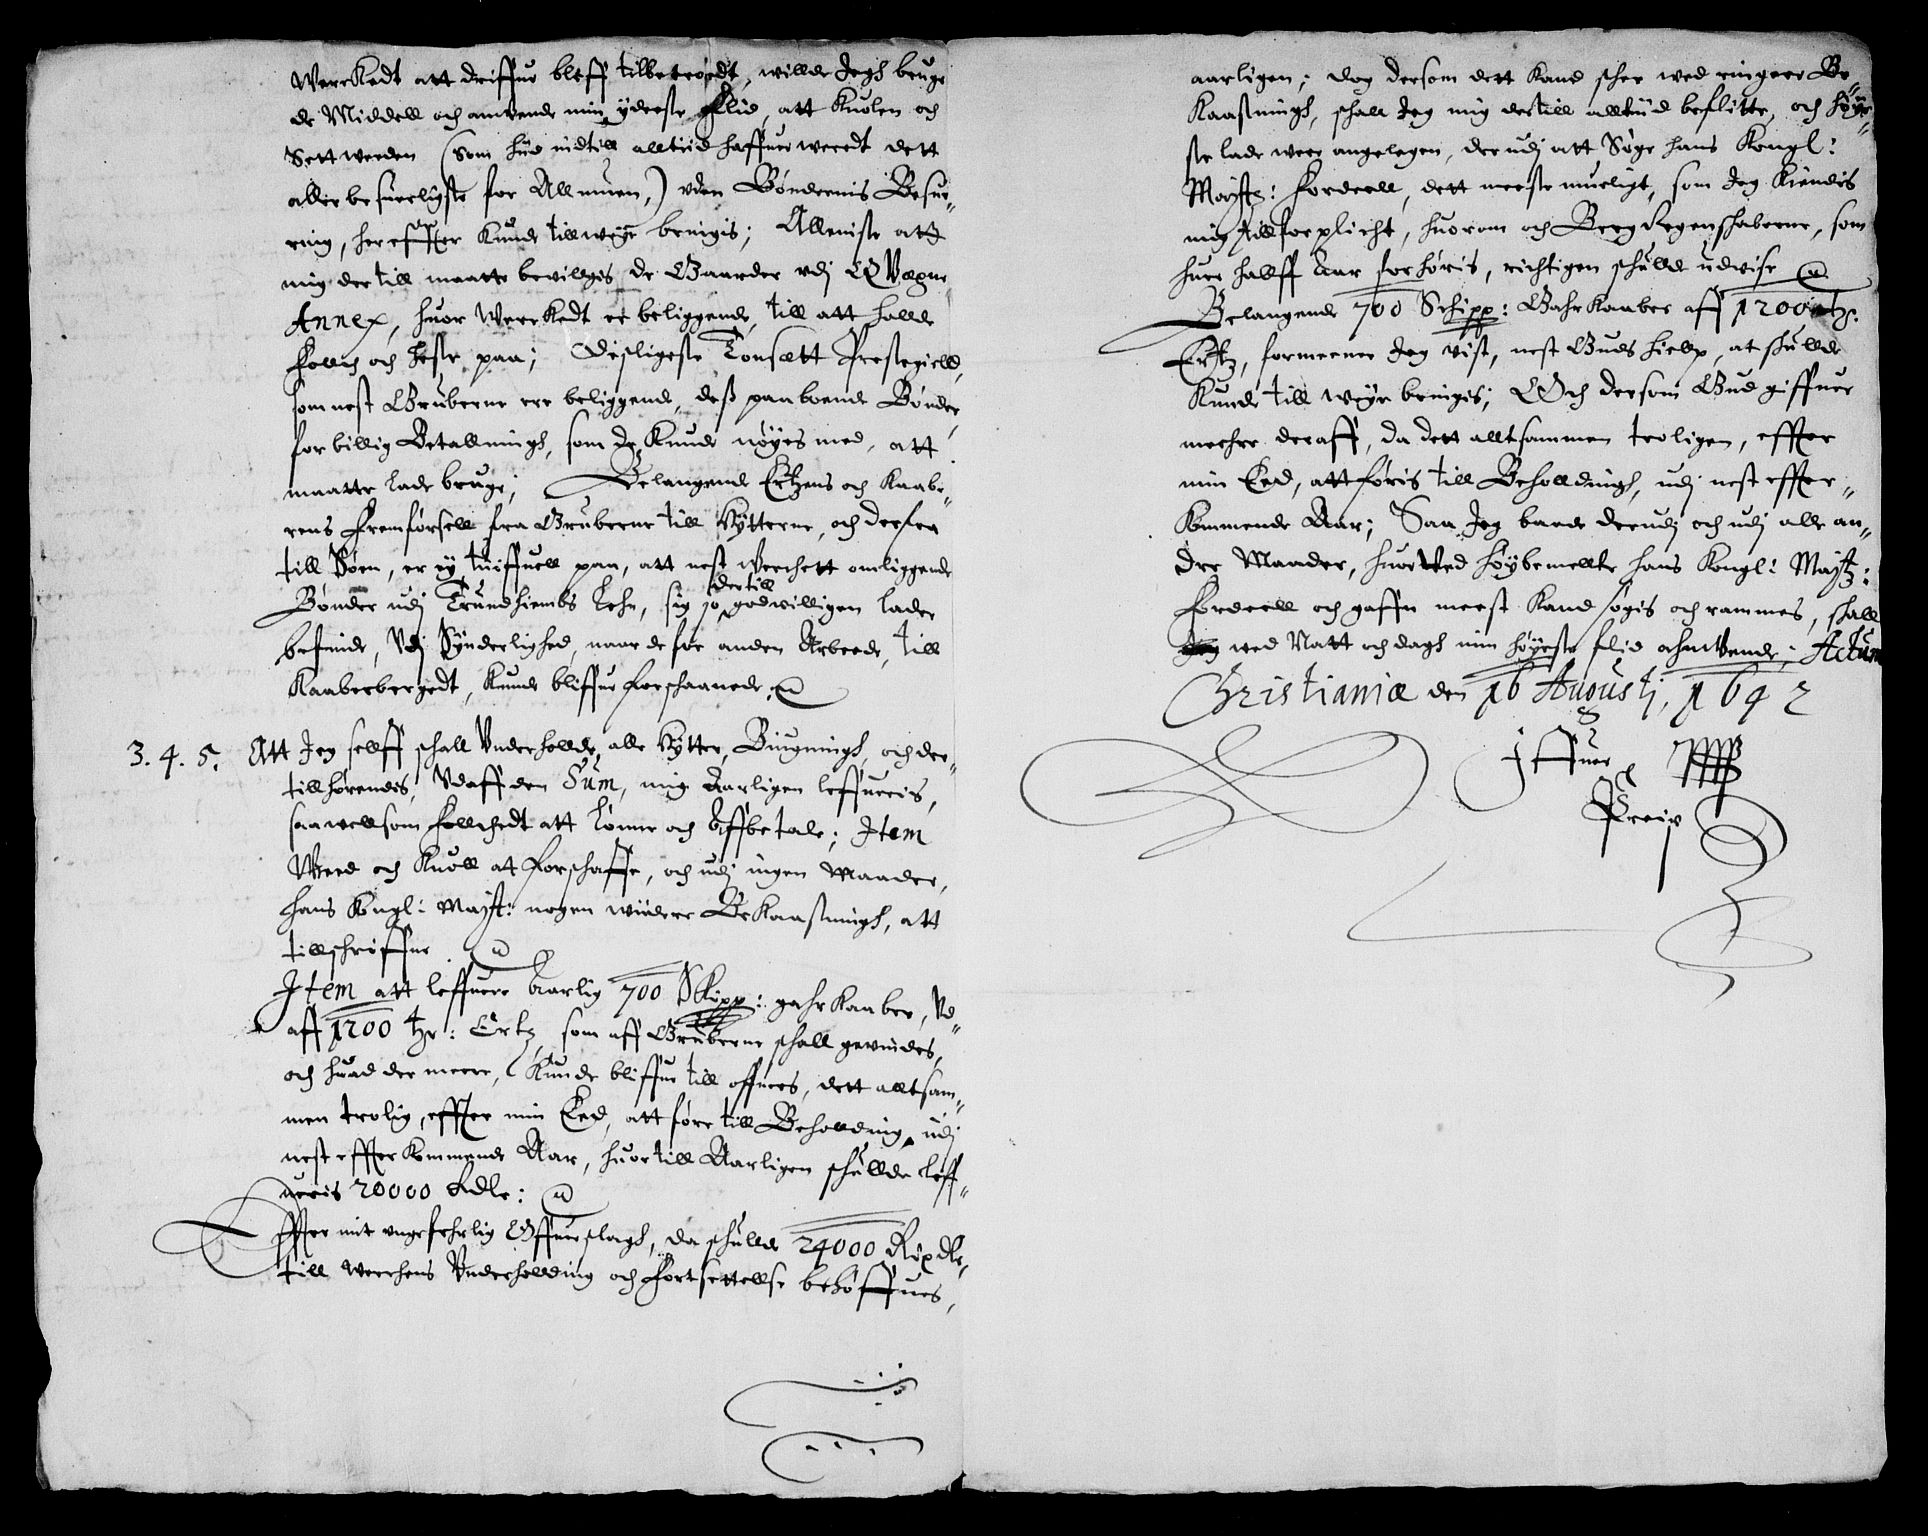 Werckedt att driffue bleff tilbetroedt, willde Jegh bruge
de Middell och anwende min yderste Flid, att Kuolen och
Sett werden (som hid indtill alltiid haffuer weredt dett
aller besuerligste for Allmuen,) uden Bøndernis Besue¬
ring, hereffter Kunde tillweye bringis; Alleniste att
mig der till maatte bevillgis de Gaarder udj
Annex, huor Werckedt er beliggende, till att holde
Follch och Heste paa; Disligeste Tonsætt Prestegield,
som nest Gruberne ere beliggende, dess paaboende Bønder,
for billig Betallningh, som de Kunde nøyes med, att
maatte lade bruge; Belangende Ertzens och Kaabe¬
rens Fremførsell fra Gruberne till Hytterne, och derfra
till Søen, er ey tuiffuell paa, att nest Werchett omliggende
Bønder udj Trundhiembs Lehn, sig jo dertill godwilligen lader
befinde, Udj Synderlighed, naar de for anden Arbeede, till
Kaaberbergedt, Kunde bliffue forschaanede.
3. 4. 5. Att Jeg sellff schall Underholde, alle Hytter, Biugningh, och der¬
tillhørendis, Udaff den Sum, mig Aarligen leffueris,
saawellsom Follchedt att Lønne och Affbetale; Item
Weed och Kuoll at forschaffe, och udj ingen Maader,
hans Kongl: Mayst: nogen widere Bekaastningh, att
tillschriffue.
Item att leffuere Aarlig 700 Skipp: gahr Kaaber, Ud¬
aff 1200 tzr: Ertz, som aff Gruberne schall gewindes,
och huad der meere, Kunde bliffue till offuers, dett alltsam¬
men trolig, effter min Eed, att føre till Beholding, udj
nest effter Kommende Aar, huortill Aarligen schullde Leff¬
ueris 20000 Rdlr:
Effter mit ungefehrlig Offuerslagh, da schulle 24000 Rixdlr,
till Werchens Underholding och Fortsettellse behøffues,
aarligen; dog dersom dett Kand schee wed ringere Be¬
Kaastningh, schall Jeg mig dertill alltiid beflitte, och høye¬
ste lade were angelegen, der udj att Søge hans Kongl:
Mayst: Fordeell, dett meeste mueligt, som Jeg Kiendis
mig till forplicht, huorom och Berg Regenschaberne, som
huer hallff Aar forhøris, richtigen schulle udvise
Belangende 700 Schipp: Gahr Kaaber aff 1200 tzr.
Ertz, formeener Jeg vist, nest Guds Hielp, at schulle
Kunde till weye bringis; Och dersom Gud giffuer
meehre deraff, da dett alltsammen troligen, effter
min Eed, att føris till Beholdningh, udj nest effter¬
Kommende Aar; Saa Jeg baade derudj och udj alle an¬
dre Maader, huor Wed Høybemelte hans Kongl: Maytz:
Fordeell och gaffn meest Kand søgis och rammes, schall
Jeg wed Natt och dagh min høyeste flid ahnWende; Actum
Christianiæ den 16 Augustj, 1642
Iffuer
Preip